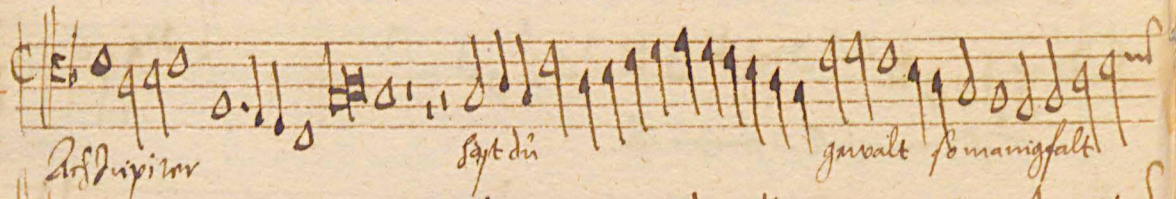 Ach Jupiter hapt du gewalt so manigfalt